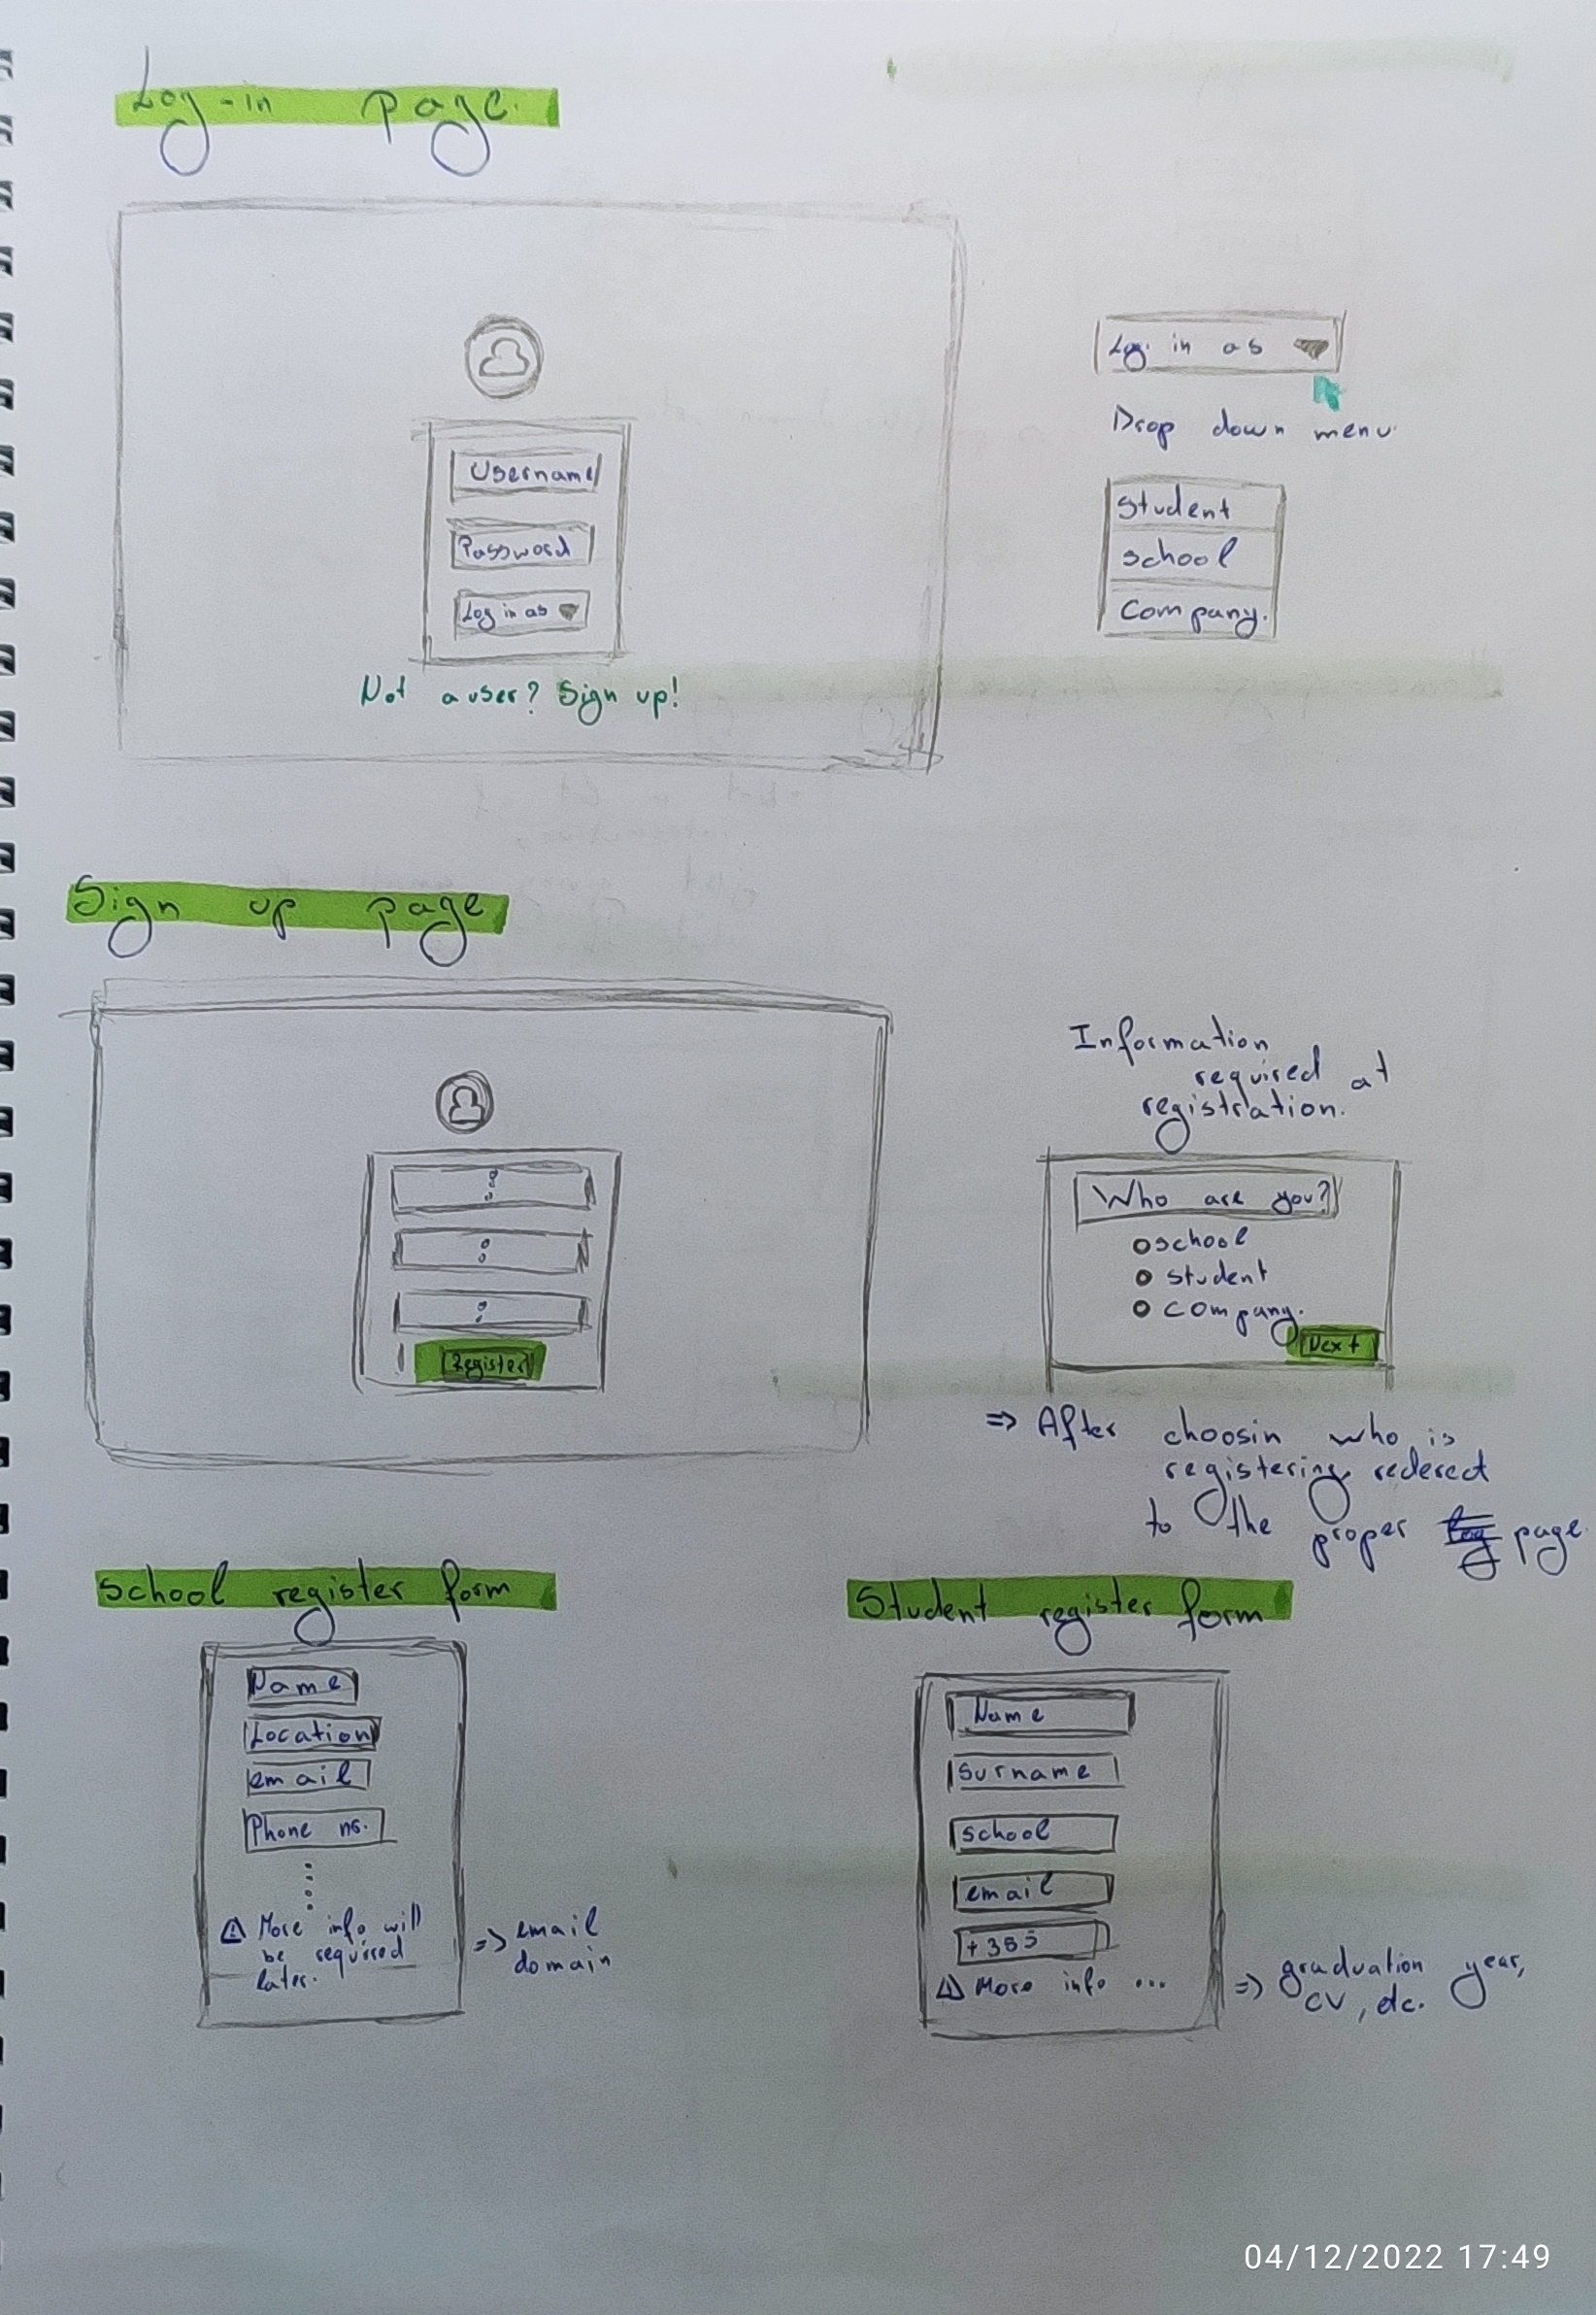 Log-in page.
Username
Password
Log in as
Not a user? Sign up!
Log in as
Drop down menu
Student
school
Company.
Sign up page
Register
Information
required at
registration.
Who are you?
school
student
company.
Next
=> After choosin who is
registering, rederect
to the proper page.
School register form
Name
Location
email
Phone no.
⚠ More info will
be required
later.
=> email
domain
Student register form
Name
surname
school
email
+355
⚠ More info ...
=> graduation year,
CV, etc.
04/12/2022 17:49